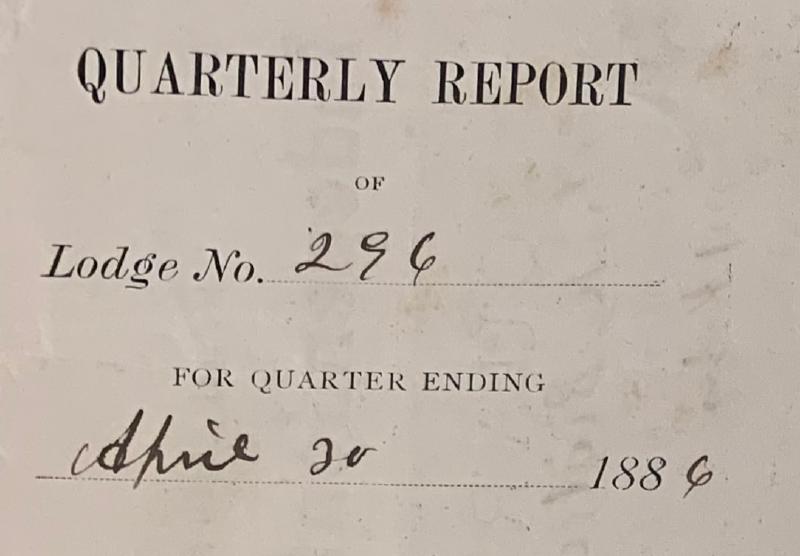 QUARTERLY REPORT
OF
Lodge No. 296
FOR QUARTER ENDING
April 30 1886